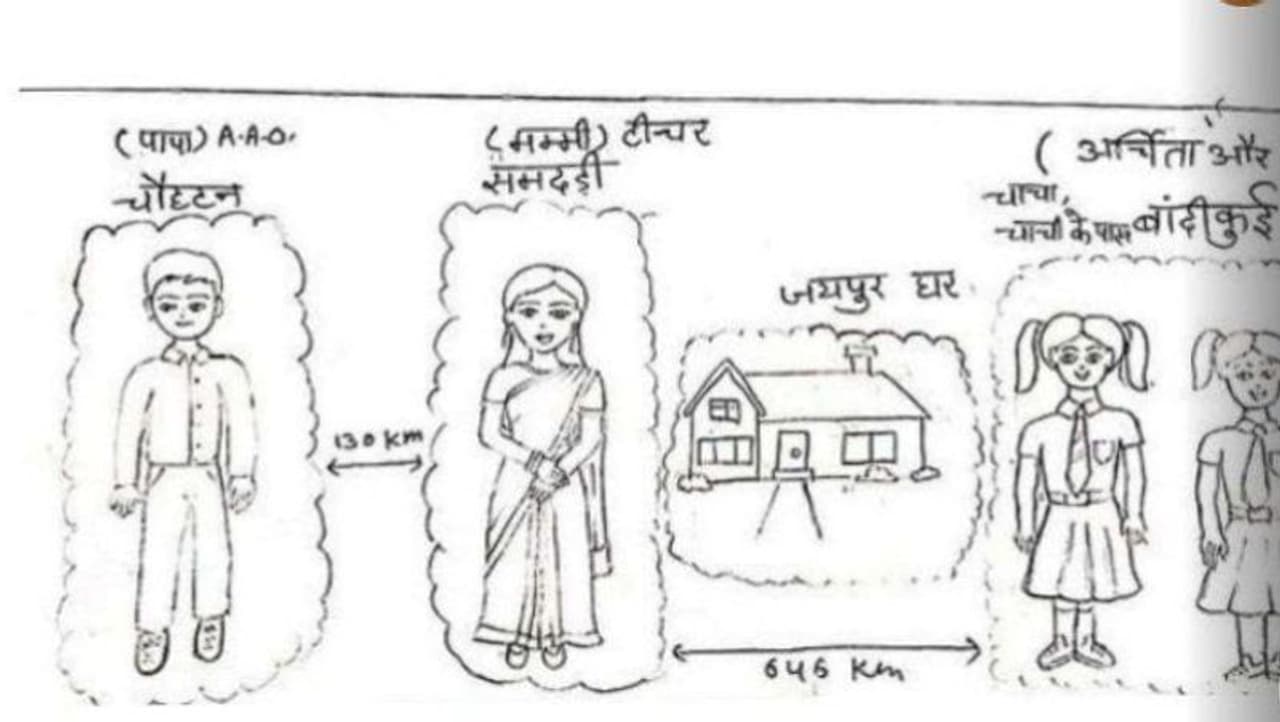 (पापा) A.A.O.
चौहटन
(मम्मी) टीचर
समदड़ी
(अर्चिता और
चाचा,
चाची के पास बांदीकुई
जयपुर घर
130 km
646 Km